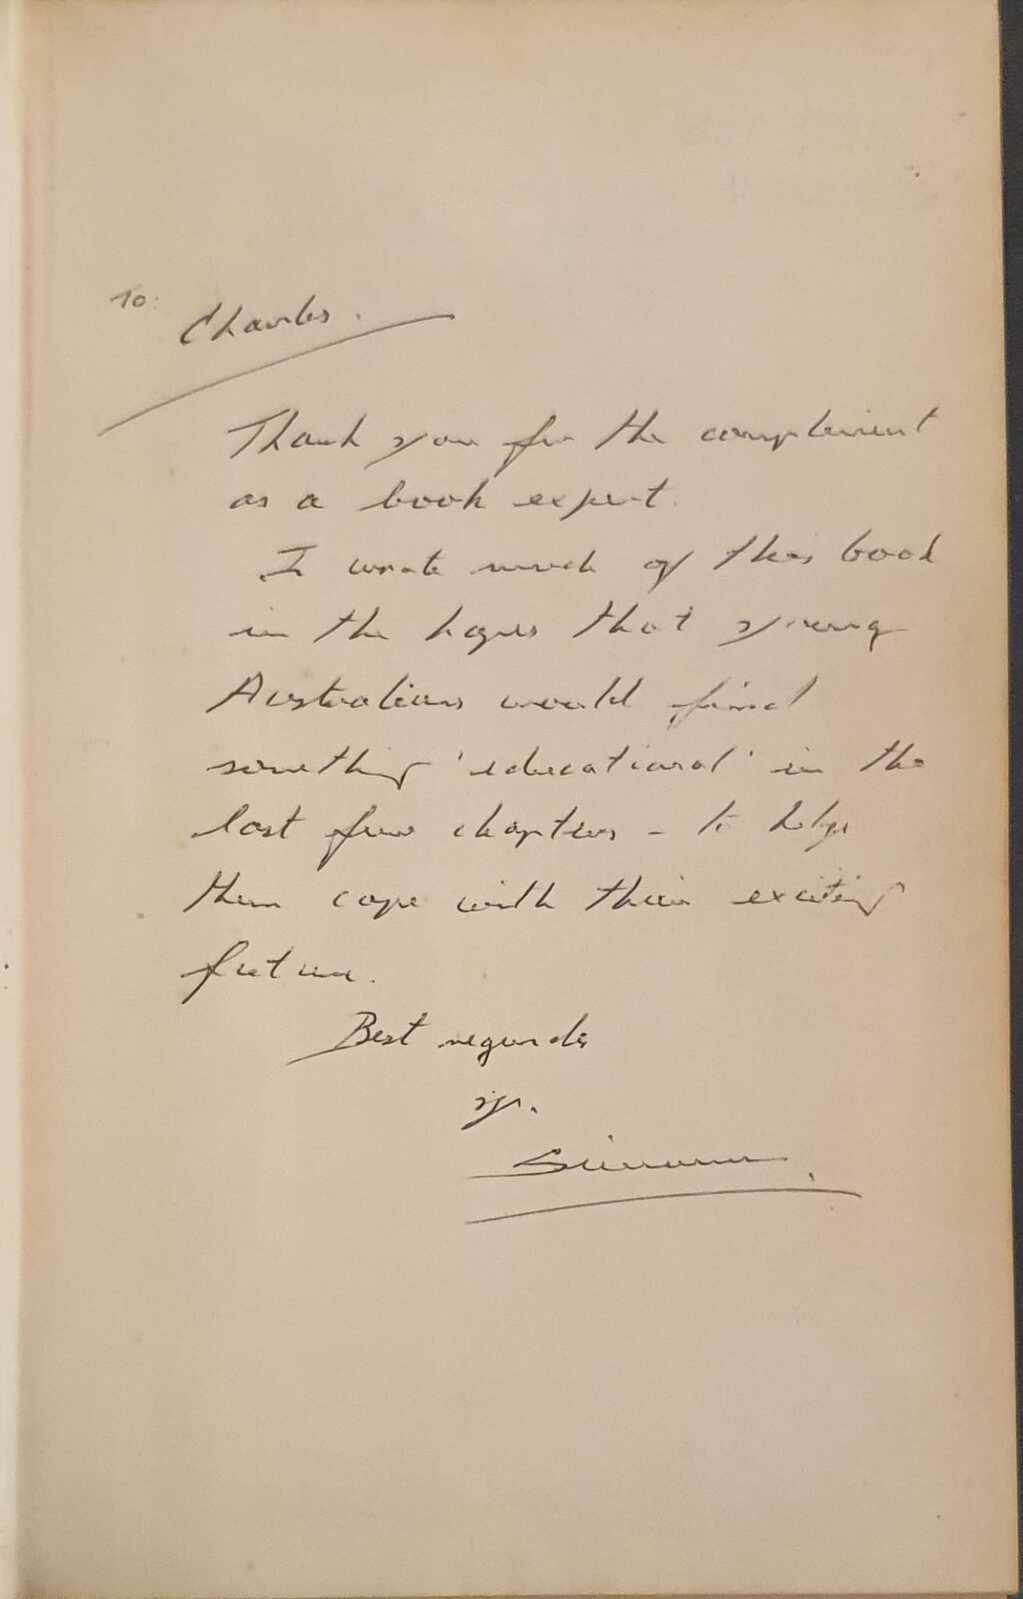 To:
Charles.
Thank you for the compliment
as a book expert.
I wrote much of this book
in the hopes that young
Australians would find
something 'educational' in the
last few chapters - to help
them cope with their exciting
future.
Best regards